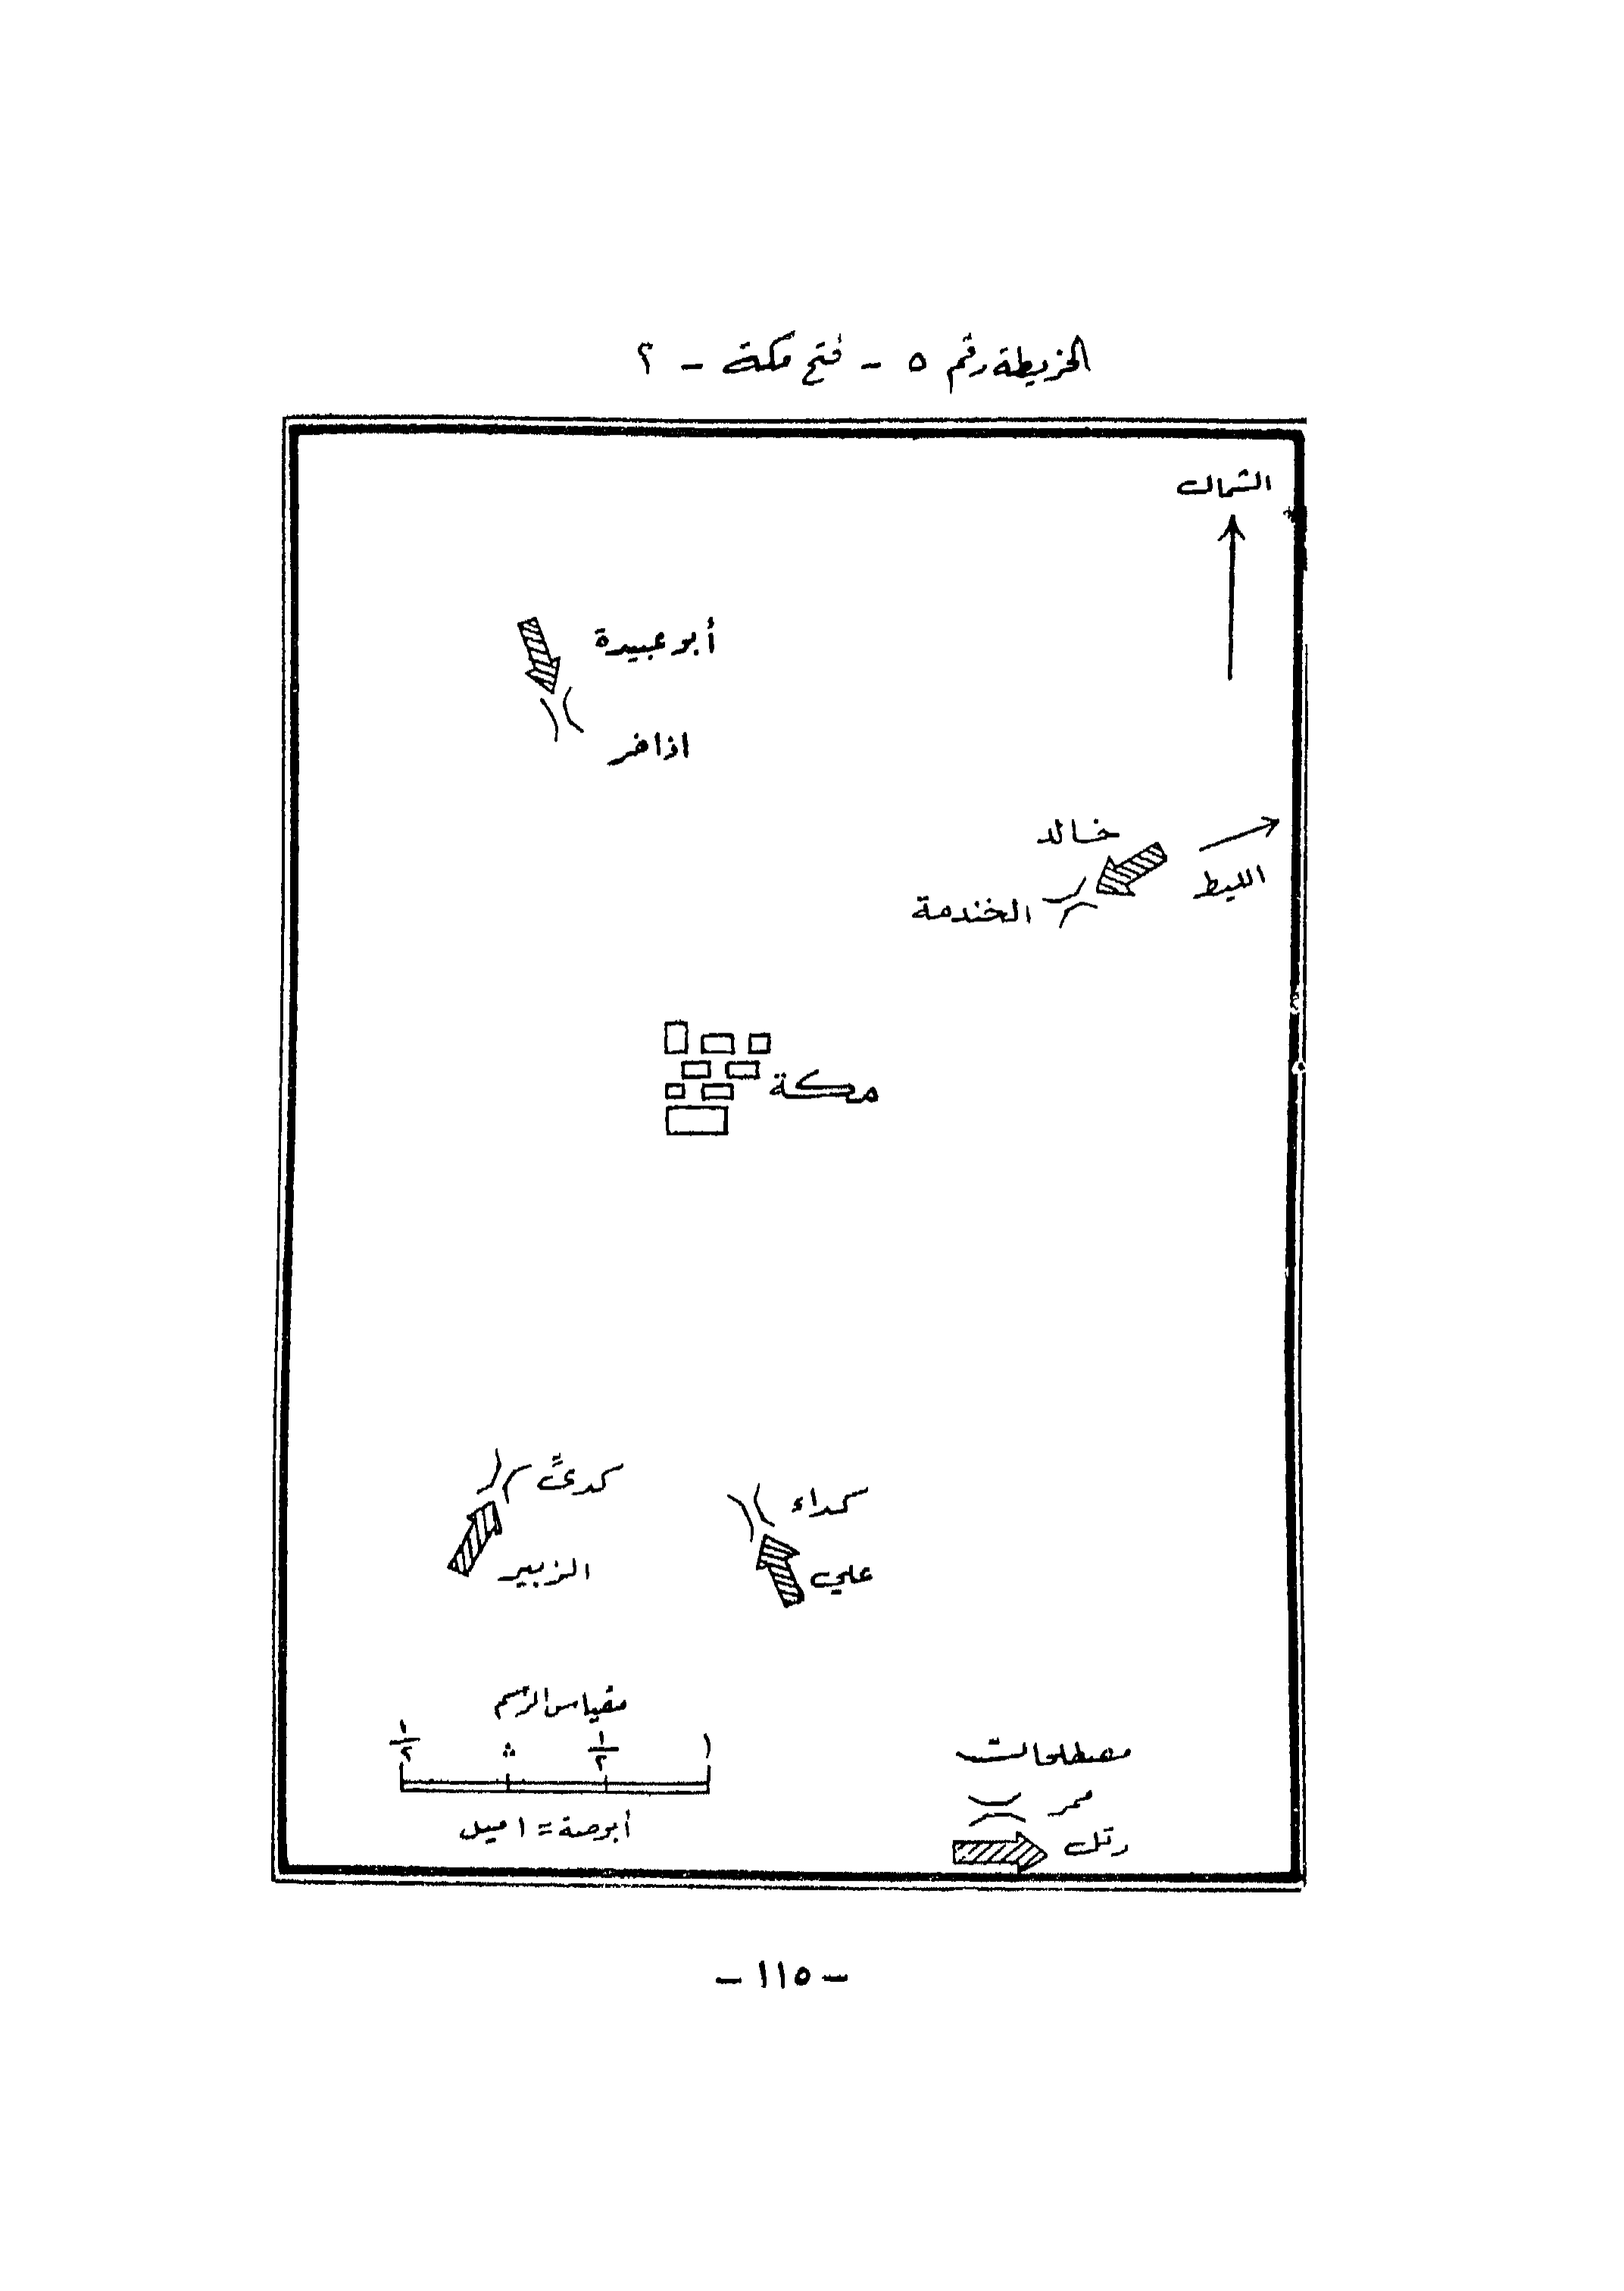 الخريطة رقم ٥ - فتح مكة - ٢
الشمال
أبو عبيدة
اذاخر
خالد
الليط
الخندمة
مكة
كدىً
كداء
الزبير
علي
مقياس الرسم
١/٢ ٠ ١/٢ ١
١ بوصة = ١ ميل
مصطلحات
ممر
رتل
- ١١٥ -